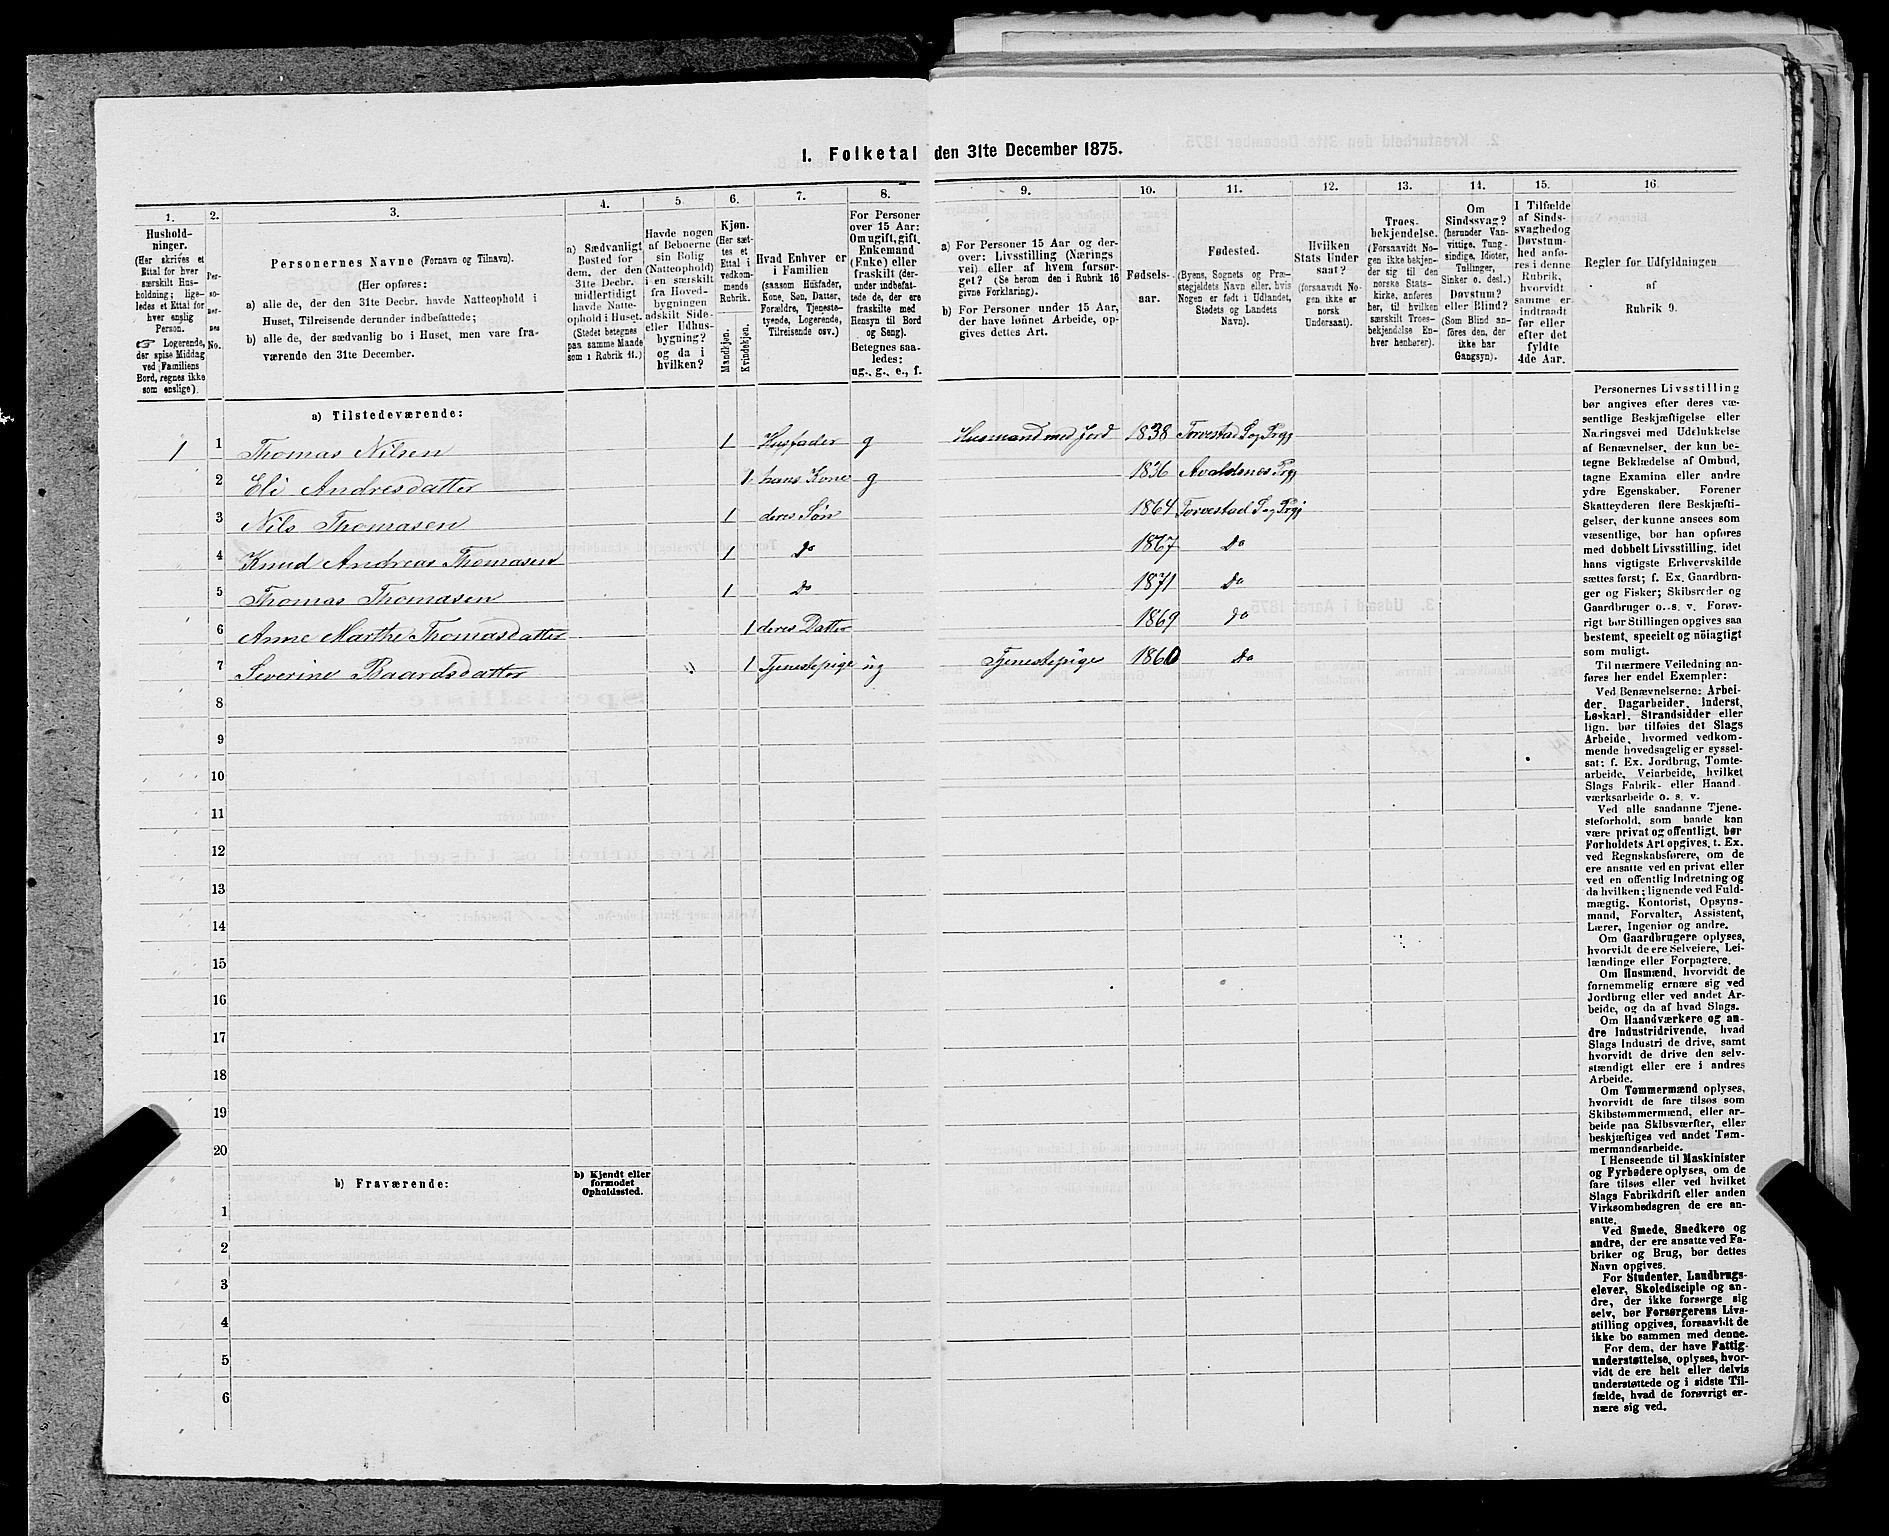 1. Folketal den 31te December 1875.
1. 2. 3. 4. 5. 6. 7. 8. 9. 10. 11. 12. 13. 14. 15. 16.
Hushold-
ninger.
(Her skrives et
Ettal for hver
særskilt Hus-
holdning; lige-
ledes et Ettal for
hver enslig
Person.
☞ Logerende,
der spise Middag
ved Familiens
Bord, regnes ikke
som enslige).
Per-
so-
ner-
nes
No.
Personernes Navne (Fornavn og Tilnavn).
(Her opføres:
a) alle de, der den 31te Decbr. havde Natteophold i
Huset, Tilreisende derunder indbefattede;
b) alle de, der sædvanlig bo i Huset, men vare fra-
værende den 31te December.
a) Sædvanligt
Bosted for
dem, der den
31te Decbr.
midlertidigt
havde Natte-
ophold i Huset.
(Stedet betegnes
paa samme Maade
som i Rubrik 11.)
Havde nogen
af Beboerne
sin Bolig
(Natteophold)
i en særskilt
fra Hoved-
bygningen
adskilt Side-
eller Udhus-
bygning?
og da i
hvilken?
Kjøn.
(Her sæt-
tes et
Ettal i
vedkom-
mende
Rubrik.
Mandkjøn.
Kvindekjøn.
Hvad Enhver er
i Familien
(saasom Husfader,
Kone, Søn, Datter,
Forældre, Tjeneste-
tyende, Logerende,
Tilreisende osv.)
For Personer
over 15 Aar:
Om ugift, gift,
Enkemand
(Enke) eller
fraskilt (der-
under indbefat-
tede de, der ere
fraskilte med
Hensyn til Bord
og Seng).
Betegnes saa-
ledes:
ug., g., e., f.
a) For Personer 15 Aar og der-
over: Livsstilling (Nærings-
vei) eller af hvem forsør-
get? (Se herom den i Rubrik 16
givne Forklaring).
b) For Personer under 15 Aar,
der have lønnet Arbeide, op-
gives dettes Art.
Fødsels-
aar.
Fødested.
(Byens, Sognets og Præ-
stegjeldets Navn eller, hvis
Nogen er født i Udlandet,
Stedets og Landets
Navn).
Hvilken
Stats Under
saat?
(forsaavidt No-
gen ikke er
norsk
Undersaat).
Troes-
bekjendelse.
(Forsaavidt No-
gen ikke bekjen-
der sig til den
norske Stats-
kirke, anføres
her, til hvilken
særskilt Troes-
bekjendelse En-
hver henhører).
Om
Sindssvag?
(herunder Van-
vittige, Tung-
sindige, Idioter,
Tullinger,
Sinker o. desl.)
Døvstum?
eller Blind?
(Som Blind an-
føres den, der
ikke har
Gangsyn).
I Tilfælde
af Sinds-
svaghed og
Døvstum-
hed anfø-
res i denne
Rubrik,
hvorvidt
samme er
indtraadt
før eller
efter det
fyldte
4de Aar.
Regler for Udfyldningen
af
Rubrik 9.
a) Tilstedeværende:
1 1 Thomas Nilsen 1 Husfader g Husmand med Jord 1838 Torvestad S og Prgj
2 Eli Andresdatter 1 hans Kone g 1836 Avaldsnes Prgj
3 Nils Thomasen 1 deres Søn 1864 Torvestad S og Prgj
4 Knud Andreas Thomasen 1 do 1867 do
5 Thomas Thomasen 1 do 1871 do
6 Anne Marthe Thomasdatter 1 deres Datter 1869 do
7 Severine Baardsdatter 1 Tjenestepige ug Tjenestepige 1860 do
8
9
10
11
12
13
14
15
16
17
18
19
20
b) Fraværende:
b) Kjendt eller
formodet
Opholdssted.
1
2
3
4
5
6
Personernes Livsstilling
bør angives efter deres væ-
sentlige Beskjæftigelse eller
Næringsvei med Udelukkelse
af Benævnelser, der kun be-
tegne Beklædelse af Ombud,
tagne Examina eller andre
ydre Egenskaber. Forener
Skatteyderen flere Beskjæfti-
gelser, der kunne ansees som
væsentlige, bør han opføres
med dobbelt Livsstilling, idet
hans vigtigste Erhvervskilde
sættes først; f. Ex. Gaardbru-
ger og Fisker; Skibsreder og
Gaardbruger o. s. v. Forøv-
rigt bør Stillingen opgives saa
bestemt, specielt og nöiagtigt
som muligt.
Til nærmere Veiledning an-
føres her endel Exempler:
Ved Benævnelserne: Arbei-
der, Dagarbeider, Inderst,
Løskarl, Strandsidder eller
lign. bør tilføies det Slags
Arbeide, hvormed vedkom-
mende hovedsagelig er syssel-
sat; f. Ex. Jordbrug, Tomte-
arbeide, Veiarbeide, hvilket
Slags Fabrik- eller Haand-
værksarbeide o. s. v.
Ved alle saadanne Tjene-
steforhold, som baade kan
være privat og offentligt, bør
Forholdets Art opgives, t. Ex.
ved Regnskabsførere, om de
ere ansatte ved en privat eller
ved en offentlig Indretning og
da hvilken; lignende ved Fuld-
mægtig, Kontorist, Opsyns-
mand, Forvalter, Assistent,
Lærer, Ingeniør og andre.
Om Gaardbrugere oplyses,
hvorvidt de ere Selveiere, Lei-
lændinge eller Forpagtere.
Om Husmænd, hvorvidt de
fornemmelig ernære sig ved
Jordbrug eller ved andet Ar-
beide, og da af hvad Slags.
Om Haandværkere og an-
dre Industridrivende, hvad
Slags Industri de drive, samt
hvorvidt de drive den selv-
stændigt eller ere i andres
Arbeide.
Om Tømmermænd oplyses,
hvorvidt de fare tilsøs som
Skibstømmermænd, eller ar-
beide paa Skibsværfter, eller
beskjæftiges ved andet Tøm-
mermandsarbeide.
I Henseende til Maskinister
og Fyrbødere oplyses, om de
fare tilsøs eller ved hvilket
Slags Fabrikdrift eller anden
Virksomhedsgren de ere an-
satte.
Ved Smede, Snedkere og
andre, der ere ansatte ved Fa-
briker og Brug, bør dettes
Navn opgives.
For Studenter, Landbrugs-
elever, Skoledisciple og an-
dre, der ikke forsørge sig
selv, bør Forsørgerens Livs-
stilling opgives, forsaavidt de
ikke bo sammen med denne.
For dem, der have Fattig-
understøttelse, oplyses, hvor-
vidt de ere helt eller delvis
understøttede og i sidste Til-
fælde, hvad de forøvrigt er-
nære sig ved.